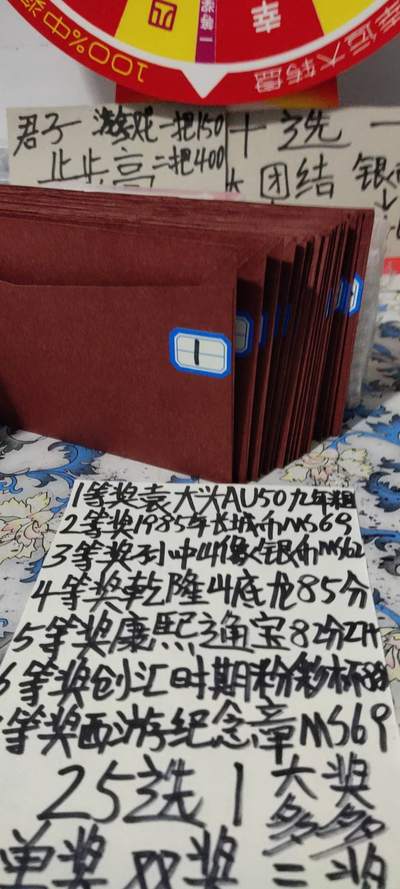 四 一等奖 幸
100%中奖
幸运大转盘
君子 游戏一把150
步步高二把400
十选一
团结 银
1
1等奖袁大头AU50九年粗
2等奖1985年长城币MS69
3等奖孙中山像银币MS62
4等奖乾隆山底龙85分
5等奖康熙通宝82分ZH
6等奖创汇时期粉彩杯88
等奖西游纪念章MS69
25选1大奖
多多
单奖88奖二奖